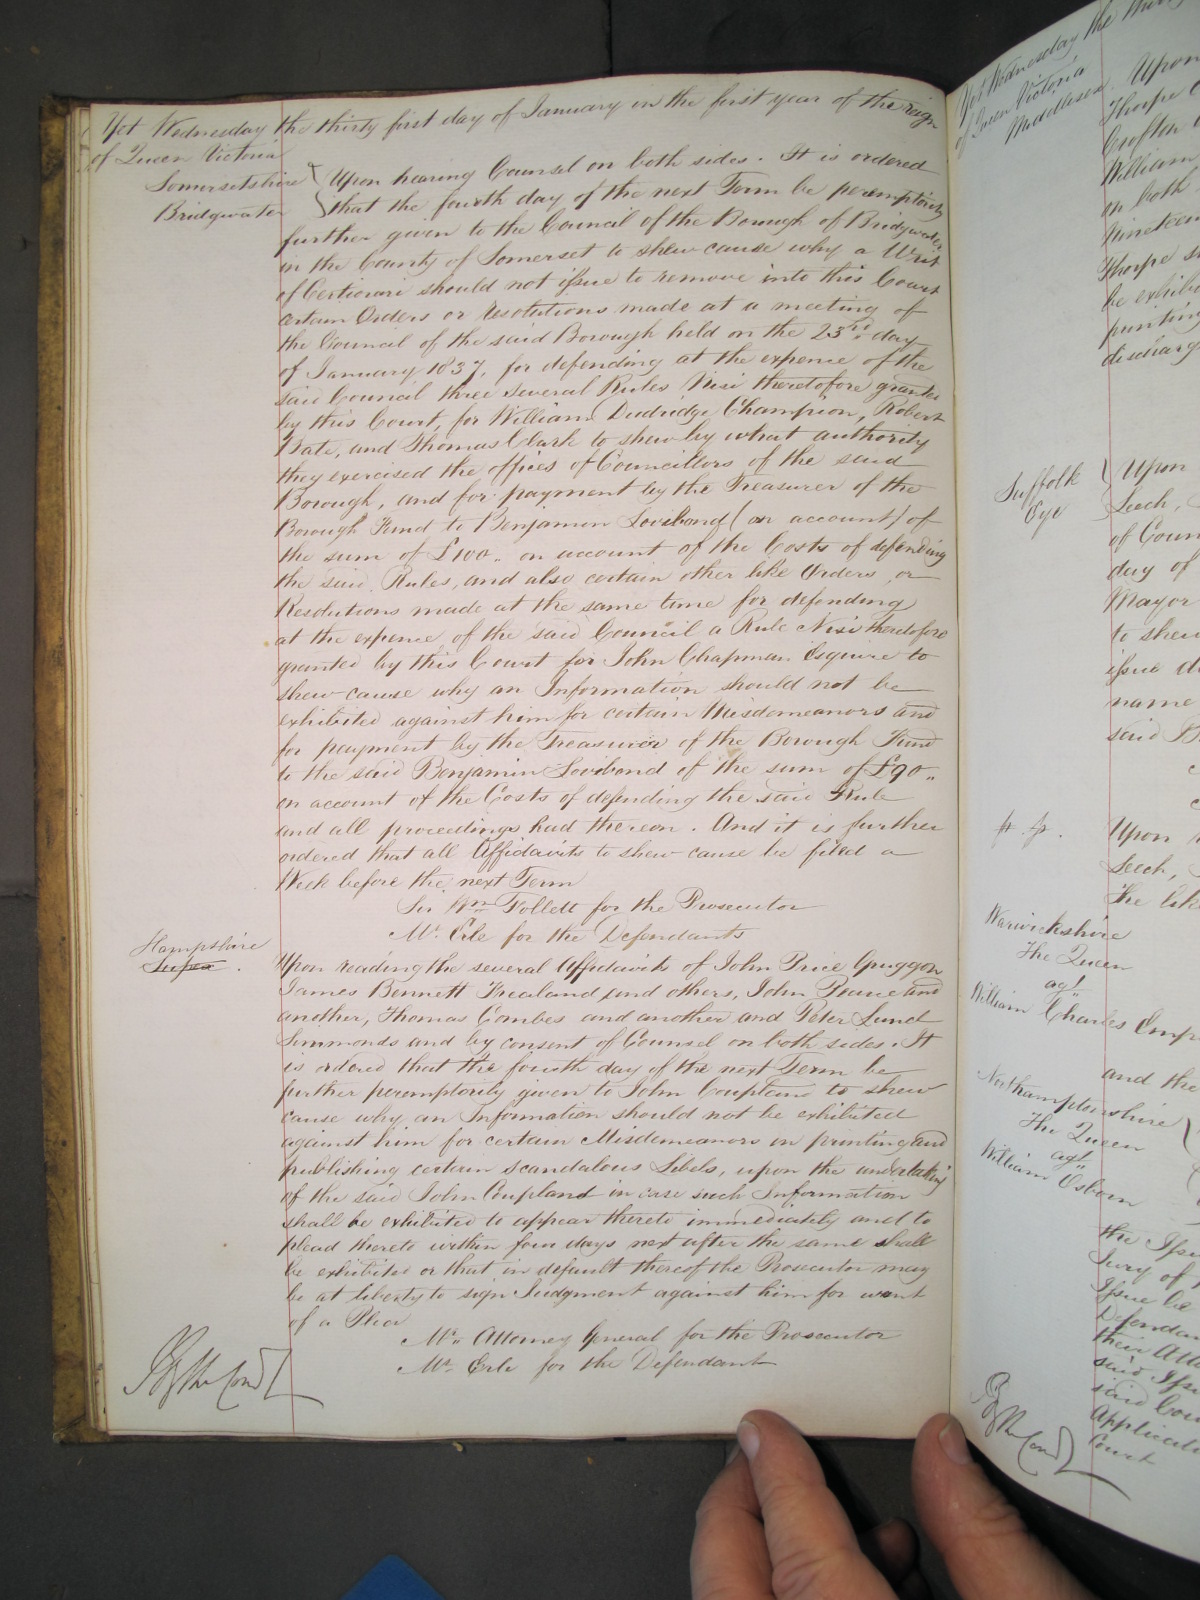 Yet Wednesday the thirty first day of January in the first year of the reign
of Queen Victoria
Somersetshire
Bridgwater
Upon hearing Counsel on both sides. It is ordered
that the fourth day of the next Term be peremptorily
further given to the Council of the Borough of Bridgwater
in the County of Somerset to shew cause why a Writ
of Certiorari should not issue to remove into this Court
certain Orders or resolutions made at a meeting of
the Council of the said Borough held on the 23rd day
of January 1837, for defending at the expence of the
said Council three several Rules Nisi theretofore granted
by this Court, for William Dudridge Champion, Robert
Bate, and Thomas Clark to shew by what authority
they exercised the offices of Councillors of the said
Borough, and for payment by the Treasurer of the
Borough Fund to Benjamin Lovibond (on account) of
the sum of £100.. on account of the Costs of defending
the said Rules, and also certain other like Orders or
Resolutions made at the same time for defending
at the expence of the said Council a Rule Nisi theretofore
granted by this Court for John Chapman Esquire to
shew cause why an Information should not be
exhibited against him for certain Misdemeanors and
for payment by the Treasurer of the Borough Fund
to the said Benjamin Lovibond of the sum of £90..
on account of the Costs of defending the said Rule
and all proceedings had thereon. And it is further
ordered that all Affidavits to shew cause be filed a
Week before the next Term
Sir Wm Follett for the Prosecutor
Mr. Erle for the Defendants
Hampshire
Upon reading the several Affidavits of John Price
James Bennett Frealand and others, John Pearce and
another, Thomas Combes and another and Peter Lund
Simmonds and by consent of Counsel on both sides. It
is ordered that the fourth day of the next Term be
further peremptorily given to John Coupland to shew
cause why an Information should not be exhibited
against him for certain Misdemeanors in printing and
publishing certain scandalous Libels, upon the undertaking
of the said John Coupland in case such Information
shall be exhibited to appear thereto immediately and to
plead thereto within four days next after the same shall
be exhibited or that in default thereof the Prosecutor may
be at liberty to sign Judgment against him for want
of a Plea
Mr. Attorney General for the Prosecutor
Mr. Erle for the Defendant
By the Court
Yet Wednesday the thirty
of Queen Victoria
Middlesex
Upon
Thorpe
Crofton
William
on both
Nineteen
Thorpe
be exhibi
printing
discharg
Suffolk
Eye
Upon
Leech,
of Coun
day of
Mayor
to shew
issue
name
said
Upon
Leech,
the like
Warwickshire
The Queen
agt
William Charles
and the
Northamptonshire
The Queen
agt
William Osborn
the Issu
Jury of
Issue be
Defendan
their Atto
said Iss
said Cou
Applicati
Court
By the Court